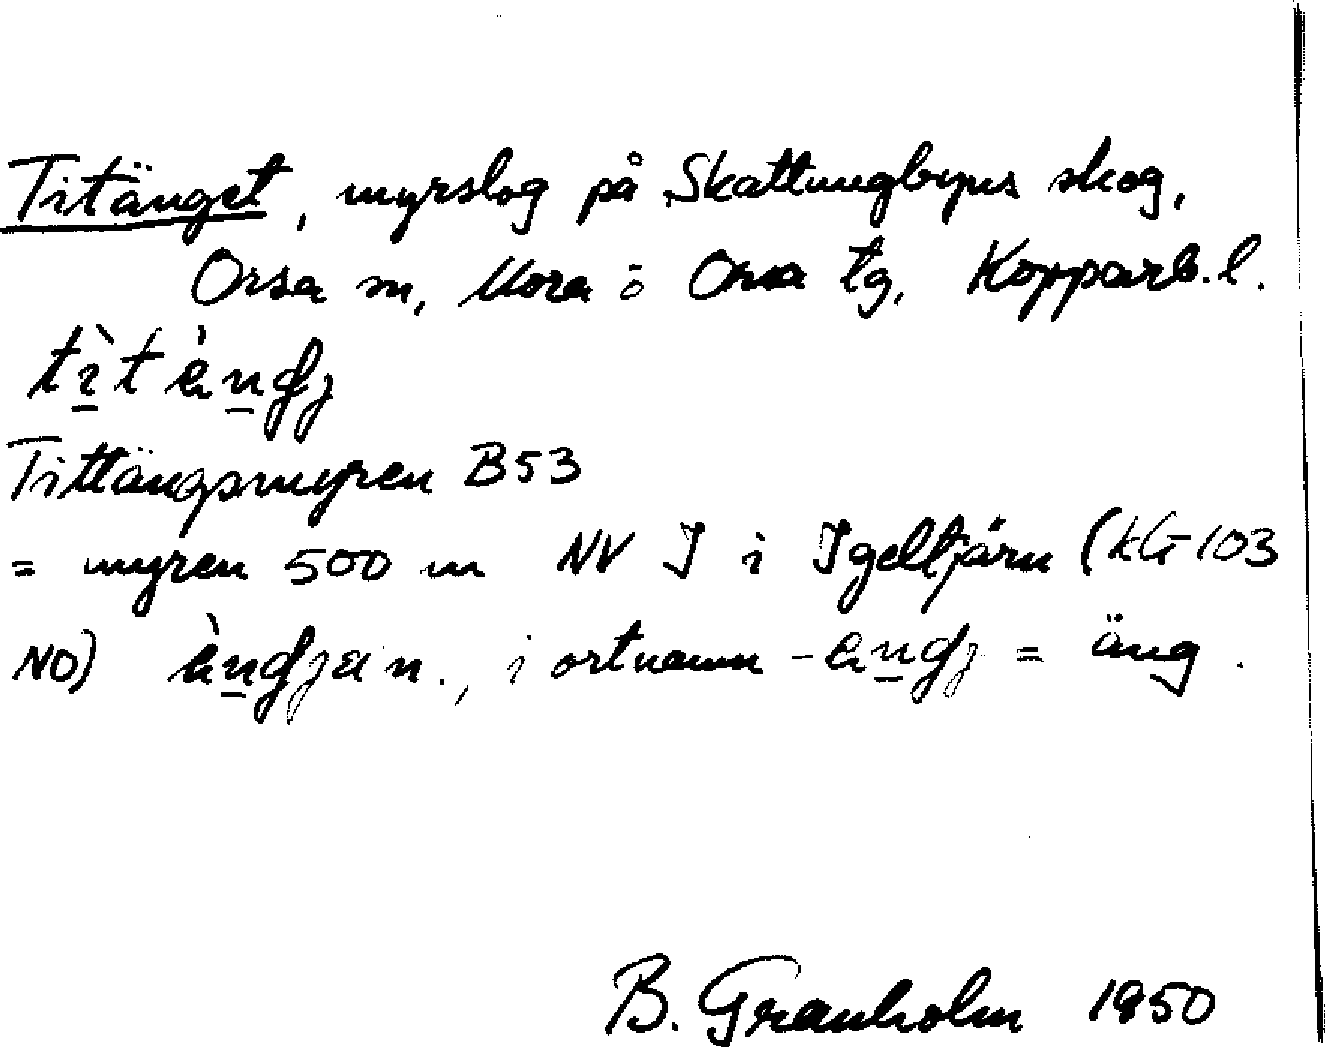 Titänget, myrslog på Skattungbyns skog,
Orsa sn, Mora o Orsa tg, Kopparb. l.
tìtàngj
Tittängsmyren B53
= myren 500 m NV I i Igeltjärn (kG 103
NO) àngjan., i ortnamn -angj = äng.
B. Granholm 1950